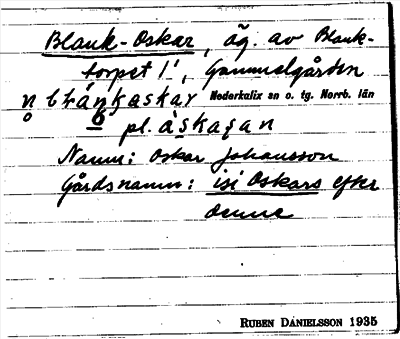 Blank-Oskar, äg. av Blank-
torpet 1¹, Gammelgården
Nederkalix sn o. tg. Norrb. län
pl. àskaṣan
Namn: Oskar Johansson
Gårdsnamn: isi Oskars efter
denne
RUBEN DANIELSSON 1935